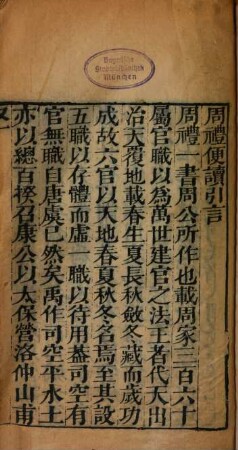 Bayerische
Staatsbibliothek
München
周禮便讀引言
周禮一書周公所作也載周家三百六十
屬官職以爲萬世建官之法王者代天出
治天覆地載春生夏長秋斂冬藏而歲功
成故六官以天地春夏秋冬名焉至其設
五職以存體而虛一職以待用蓋司空有
官無職自唐虞已然矣禹作司空平水土
亦以總百揆召康公以太保營洛仲山甫